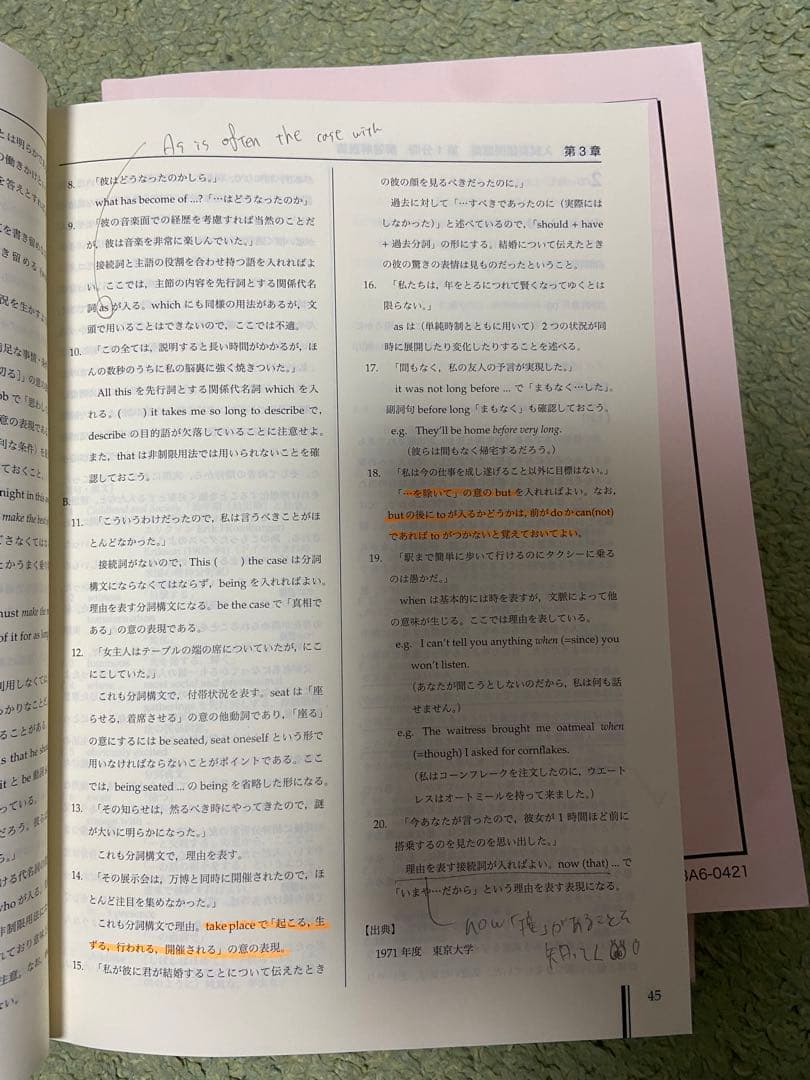 As is often the case with
第3章
8. 「彼はどうなったのかしら。」
what has become of ...? 「…はどうなったのか」
9. 「彼の音楽面での経歴を考慮すれば当然のことだ
が，彼は音楽を非常に楽しんでいた。」
接続詞と主語の役割を合わせ持つ語を入れればよ
い。ここでは，主節の内容を先行詞とする関係代名
詞 as が入る。which にも同様の用法があるが，文
頭で用いることはできないので，ここでは不適。
10. 「この全ては，説明すると長い時間がかかるが，ほ
んの数秒のうちに私の脳裏に強く焼きついた。」
All this を先行詞とする関係代名詞 which を入
れる。( ) it takes me so long to describe で，
describe の目的語が欠落していることに注意せよ。
また，that は非制限用法では用いられないことを確
認しておこう。
B.
11. 「こういうわけだったので，私は言うべきことがほ
とんどなかった。」
接続詞がないので，This ( ) the case は分詞
構文にならなくてはならず，being を入れればよい。
理由を表す分詞構文になる。be the case で「真相で
ある」の意の表現である。
12. 「女主人はテーブルの端の席についていたが，にこ
にこしていた。」
これも分詞構文で，付帯状況を表す。seat は「座
らせる，着席させる」の意の他動詞であり，「座る」
の意にするには be seated, seat oneself という形で
用いなければならないことがポイントである。ここ
では，being seated ... の being を省略した形になる。
13. 「その知らせは，然るべき時にやってきたので，謎
が大いに明らかになった。」
これも分詞構文で，理由を表す。
14. 「その展示会は，万博と同時に開催されたので，ほ
とんど注目を集めなかった。」
これも分詞構文で理由。take place で「起こる，生
ずる，行われる，開催される」の意の表現。
15. 「私が彼に君が結婚することについて伝えたとき
の彼の顔を見るべきだったのに。」
過去に対して「…すべきであったのに（実際には
しなかった）」と述べているので，「should + have
+ 過去分詞」の形にする。結婚について伝えたとき
の彼の驚きの表情は見ものだったということ。
16. 「私たちは，年をとるにつれて賢くなってゆくとは
限らない。」
as は（単純時制とともに用いて）2つの状況が同
時に展開したり変化したりすることを述べる。
17. 「間もなく，私の友人の予言が実現した。」
it was not long before ... で「まもなく…した」。
副詞句 before long「まもなく」も確認しておこう。
e.g. They'll be home before very long.
（彼らは間もなく帰宅するだろう。）
18. 「私は今の仕事を成し遂げること以外に目標はない。」
「…を除いて」の意の but を入れればよい。なお，
but の後に to が入るかどうかは，前が do か can(not)
であれば to がつかないと覚えておいてよい。
19. 「駅まで簡単に歩いて行けるのにタクシーに乗る
のは愚かだ。」
when は基本的には時を表すが，文脈によって他
の意味が生じる。ここでは理由を表している。
e.g. I can't tell you anything when (=since) you
won't listen.
（あなたが聞こうとしないのだから，私は何も話
せません。）
e.g. The waitress brought me oatmeal when
(=though) I asked for cornflakes.
（私はコーンフレークを注文したのに，ウエート
レスはオートミールを持って来ました。）
20. 「今あなたが言ったので，彼女が1時間ほど前に
搭乗するのを見たのを思い出した。」
理由を表す接続詞が入ればよい。now (that) ... で
「いまや…だから」という理由を表す表現になる。
【出典】
1971年度 東京大学
now「接」があることを
45
BA6-0421